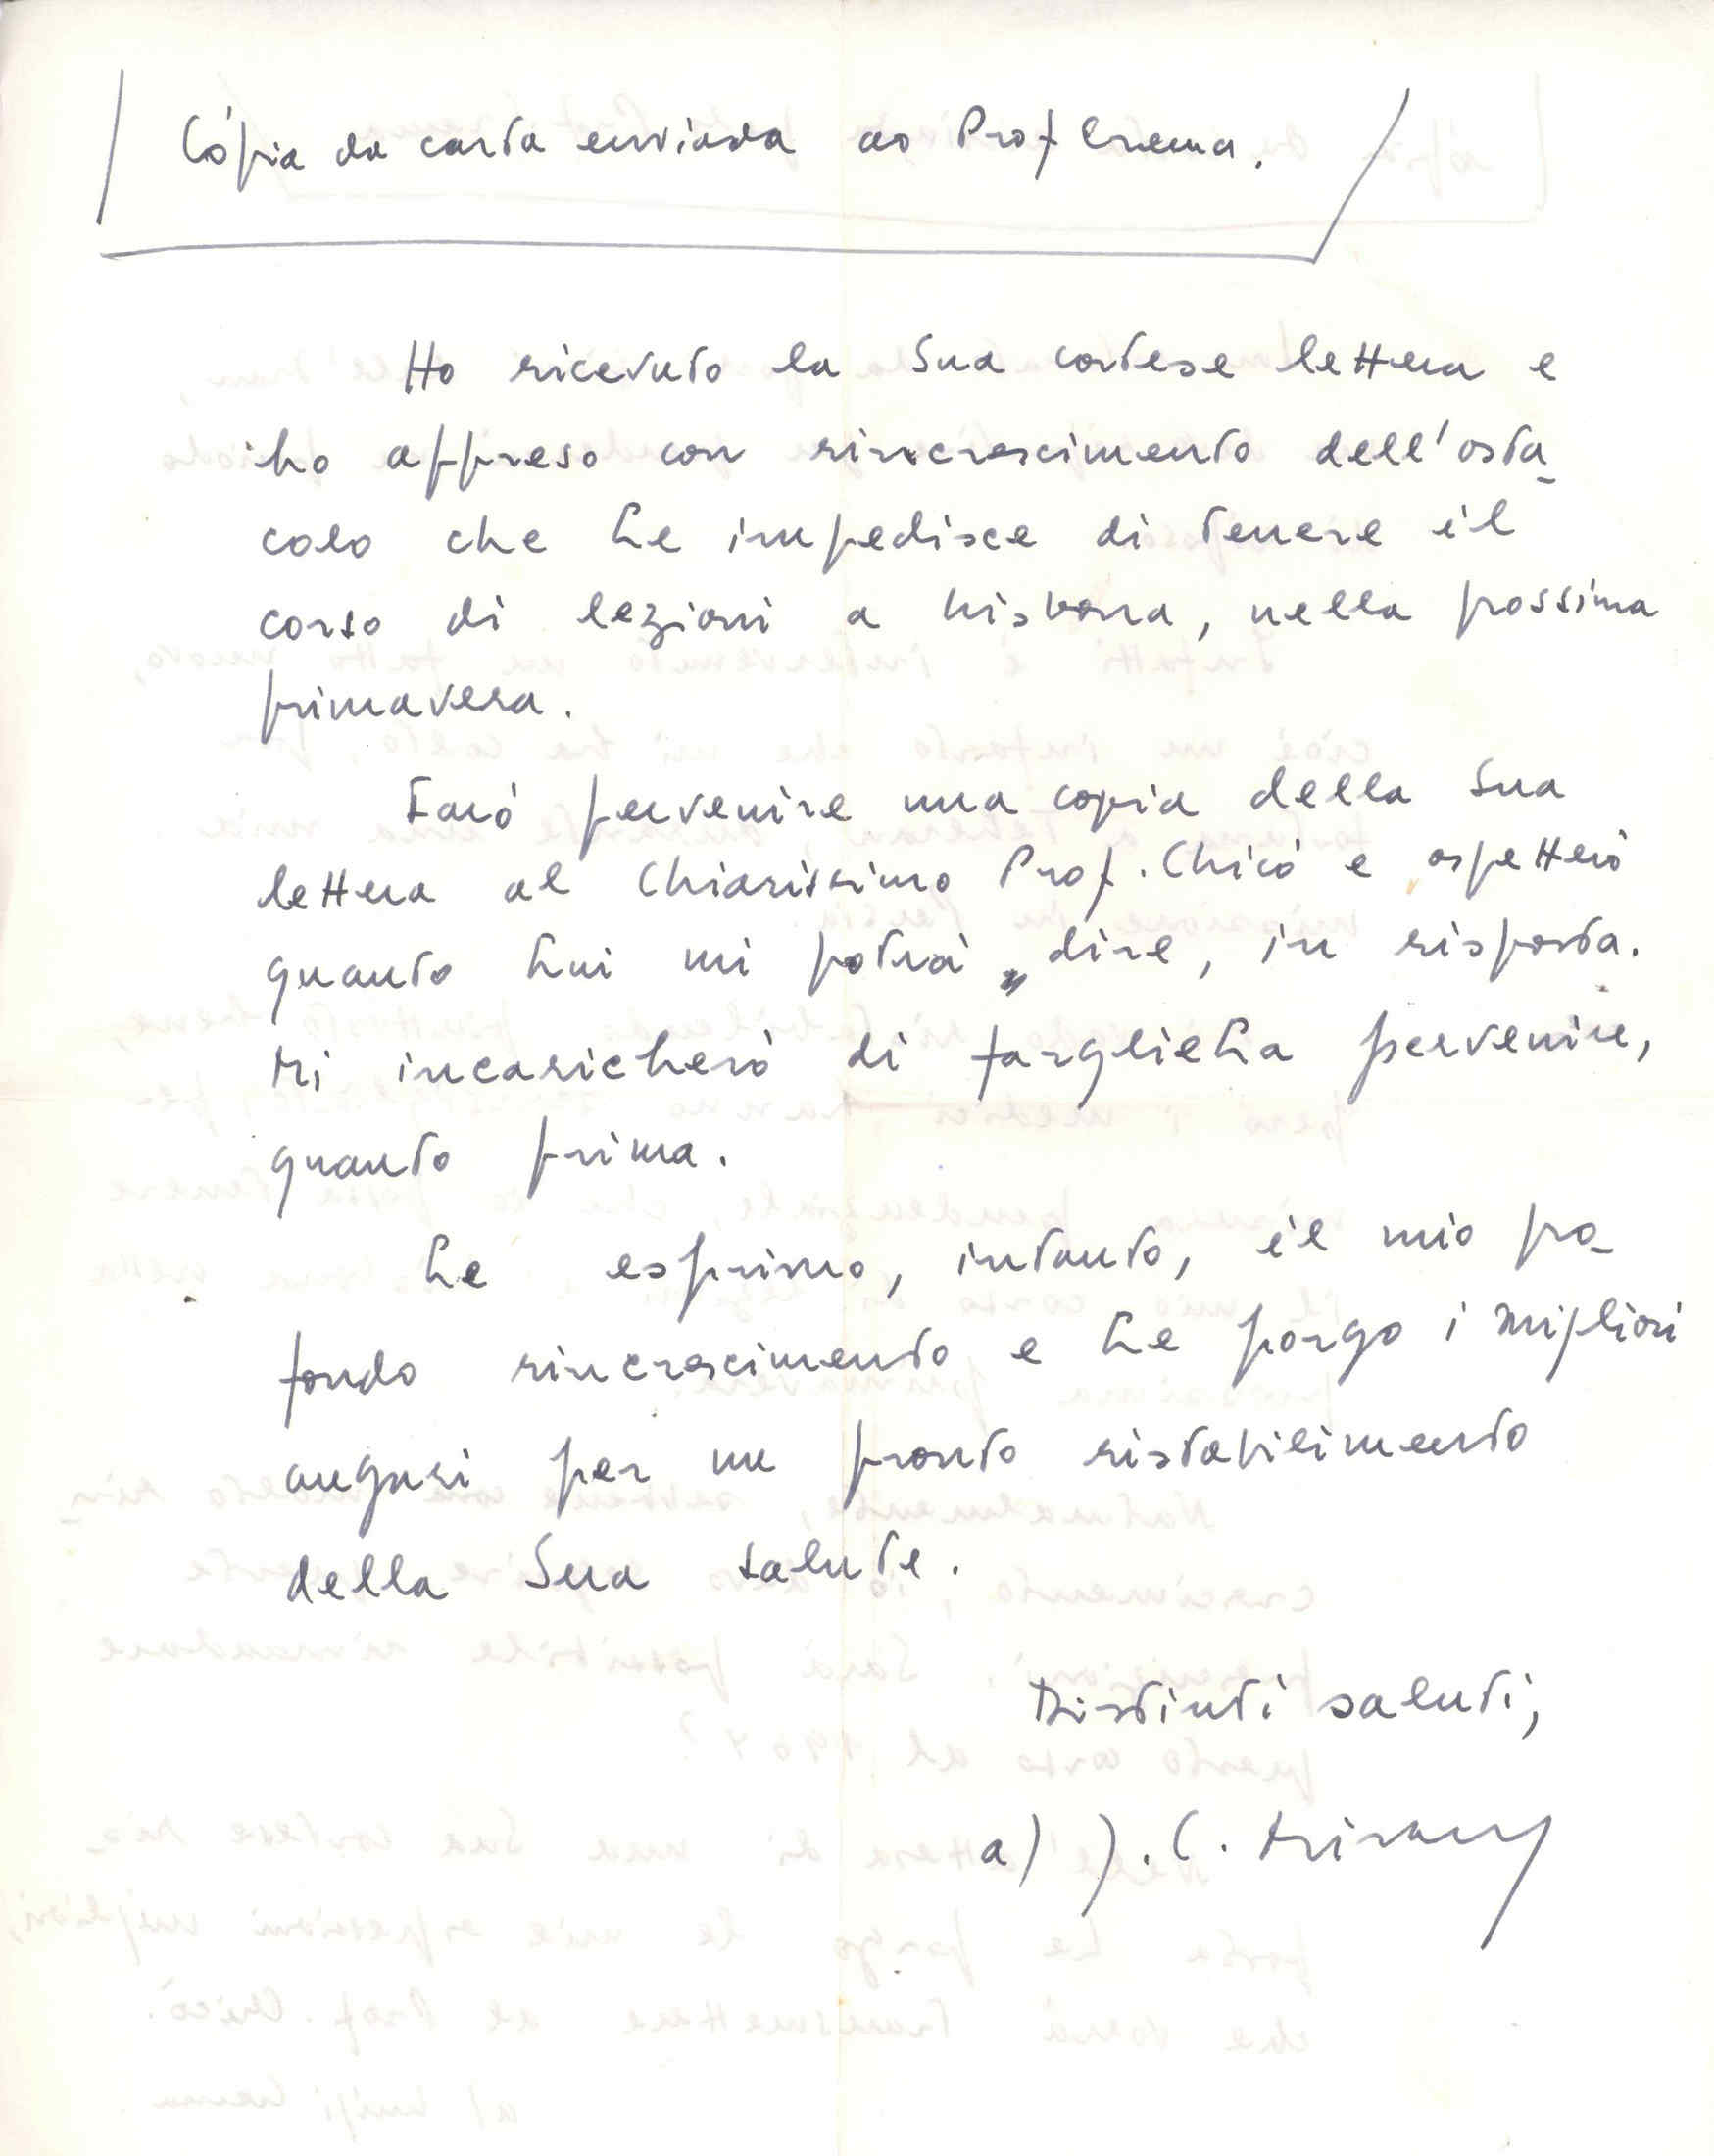 Cópia da carta enviada ao Prof Crema.
Ho ricevuto la Sua cortese lettera e
ho appreso con rincrescimento dell'osta-
colo che Le impedisce di tenere il
corso di lezioni a Lisbona, nella possima
primavera.
Farò pervenire una copia della Sua
lettera al Chiarissimo Prof. Chicó e aspetterò
quanto Lui mi potrà dire, in risposta.
Mi incaricherò di farglieLa pervenire,
quanto prima.
Le esprimo, intanto, il mio pro-
fondo rincrescimento e Le porgo i migliori
auguri per un pronto ristabilimento
della Sua salute.
Distinti saluti,
a) J. C.